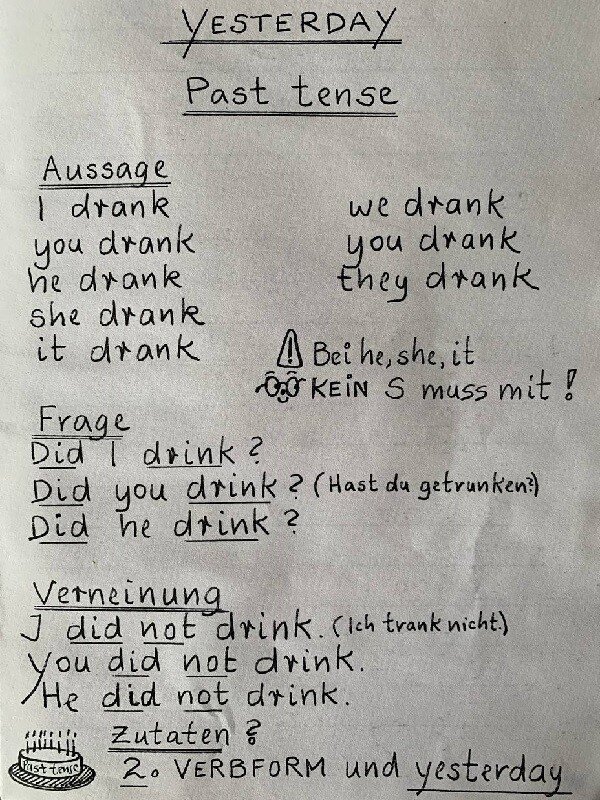 YESTERDAY
Past tense
Aussage
I drank
you drank
he drank
she drank
it drank
we drank
you drank
they drank
Bei he, she, it
KEIN S muss mit!
Frage
Did I drink?
Did you drink? (Hast du getrunken?)
Did he drink?
Verneinung
I did not drink. (Ich trank nicht.)
You did not drink.
He did not drink.
Zutaten?
Past tense
2. VERBFORM und yesterday